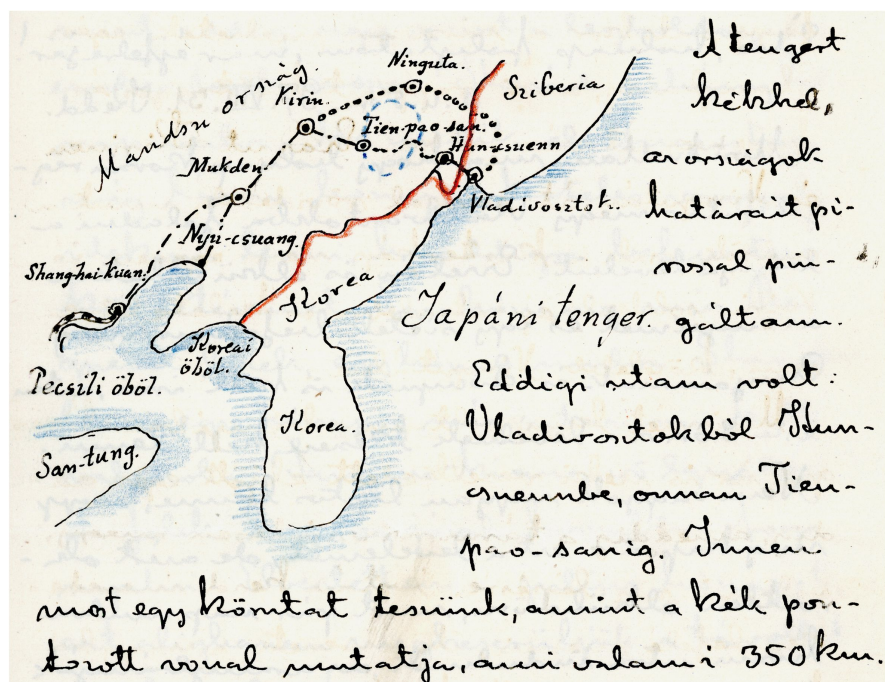 Mandsu ország.
Ninguta.
Kirin.
Sziberia
Tien-pao-san.
Hun-csuenn
Mukden.
Vladivosztok.
Nyu-csuang.
Shang-hai-kuan.
Korea
Japáni tenger.
Koreai
öböl.
Pecsili öböl.
Korea.
San-tung.
A tengert
kékkel,
az országok
határait pi-
rossal pin-
gáltam.
Eddigi utam volt:
Vladivostokból Hun-
csuennbe, onnan Tien-
pao-sanig. Innen
most egy körutat teszünk, amint a kék pon-
tozott vonal mutatja, ami valami 350 km.